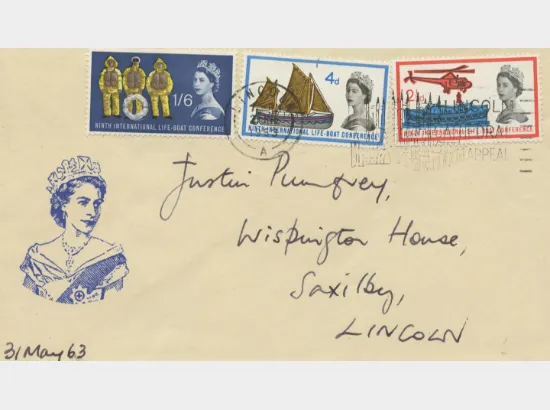 1/6
NINTH INTERNATIONAL LIFE-BOAT CONFERENCE
4d
NINTH INTERNATIONAL LIFE-BOAT CONFERENCE
2½
CONFERENCE
LINCOLN
A
LINCOLN
APPEAL
Justin Pumfrey,
Wispington House,
Saxilby,
LINCOLN
31 May 63